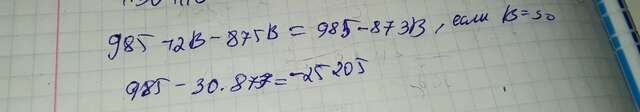 985 +2В - 875В = 985 - 873В, если В=30
985 - 30 . 873 = -25205